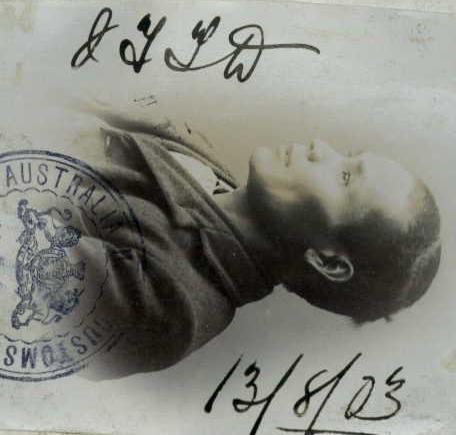 AUSTRALIA
CUSTOMS
13/8/03